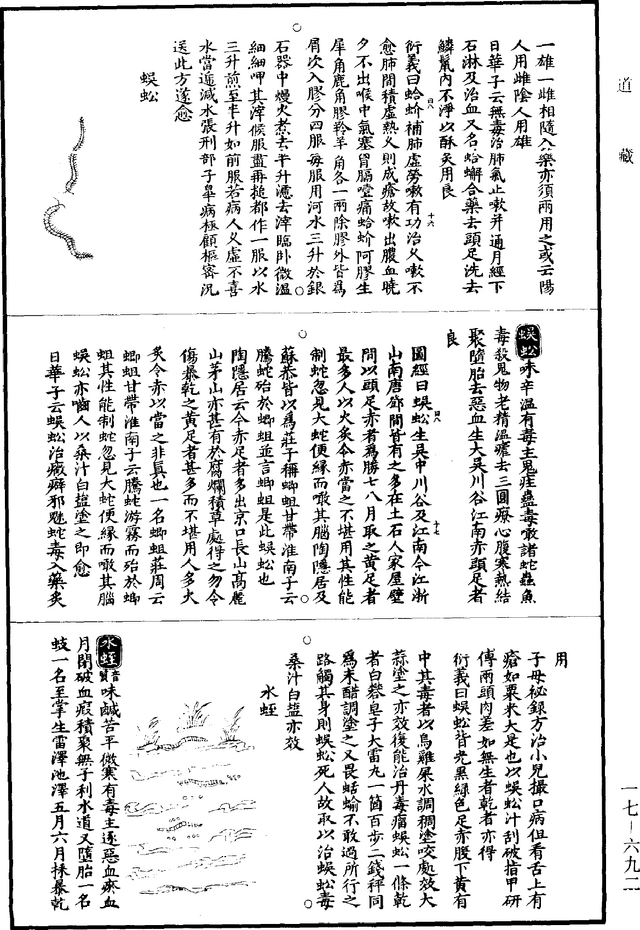 道藏
一雄一雌相隨入藥亦須兩用之或云陽
人用雌陰人用雄
日華子云無毒治肺氣止嗽并通月經下
石淋及治血又名蛤蠏合藥去頭足洗去
鱗鬣內不淨以酥炙用良
衍義曰蛤蚧補肺虛勞嗽有功治久嗽不
愈肺間積虛熱久則成瘡故嗽出膿血曉
夕不出喉中氣塞胷膈噎痛蛤蚧阿膠生
犀角鹿角膠羚羊角各一兩除膠外皆爲
屑次入膠分四服每服用河水三升於銀
石器中熳火煮去半升濾去滓臨卧微温
細細呷其滓候服盡再搥都作一服以水
三升煎至半升如前服若病人久虛不喜
水當遞減水張刑部子皐病極顧樞密況
送此方遂愈
蜈蚣
四八
十六
蜈蚣味辛温有毒主鬼疰蠱毒噉諸蛇蟲魚
毒殺鬼物老精温瘧去三蟲療心腹寒熱結
聚隨胎去惡血生大吳川谷江南赤頭足者
良
圖經曰蜈蚣生吳中川谷及江南今江浙
山南唐鄧間皆有之多在土石人家屋壁
間以頭足赤者爲勝七八月取之黃足者
最多人以火炙令赤當之不堪用其性能
制蛇忽見大蛇便緣而噉其腦陶隱居及
蘇恭皆以爲莊子稱蝍蛆甘帶淮南子云
騰蛇殆於蝍蛆並言蝍蛆是此蜈蚣也
陶隱居云今赤足者多出京口長山高麗
山茅山亦甚有於腐爛積草處得之勿令
傷暴乾之黃足者甚多而不堪用人多火
炙令赤以當之非真也一名蝍蛆莊周云
蝍蛆甘帶淮南子云騰蛇游霧而殆於蝍
蛆其性能制蛇忽見大蛇便緣而噉其腦
蜈蚣亦嚙人以桑汁白鹽塗之即愈
日華子云蜈蚣治癥癖邪魅蛇毒入藥炙
四八
十七
用
子母祕録方治小兒撮口病但看舌上有
瘡如粟米大是也以蜈蚣汁刮破指甲研
傅兩頭肉差如無生者乾者亦得
衍義曰蜈蚣皆光黑綠色足赤腹下黃有
中其毒者以烏雞屎水調稠塗咬處效大
蒜塗之亦效復能治丹毒瘤蜈蚣一條乾
者白礬皂子大雷丸一箇百步二錢秤同
爲末醋調塗之又畏蛞蝓不敢過所行之
路觸其身則蜈蚣死人故取以治蜈蚣毒
桑汁白鹽亦效
水蛭
水蛭音質味鹹苦平微寒有毒主逐惡血瘀血
月閉破血瘕積聚無子利水道又隨胎一名
蚑一名至掌生雷澤池澤五月六月採暴乾
一七-六九二